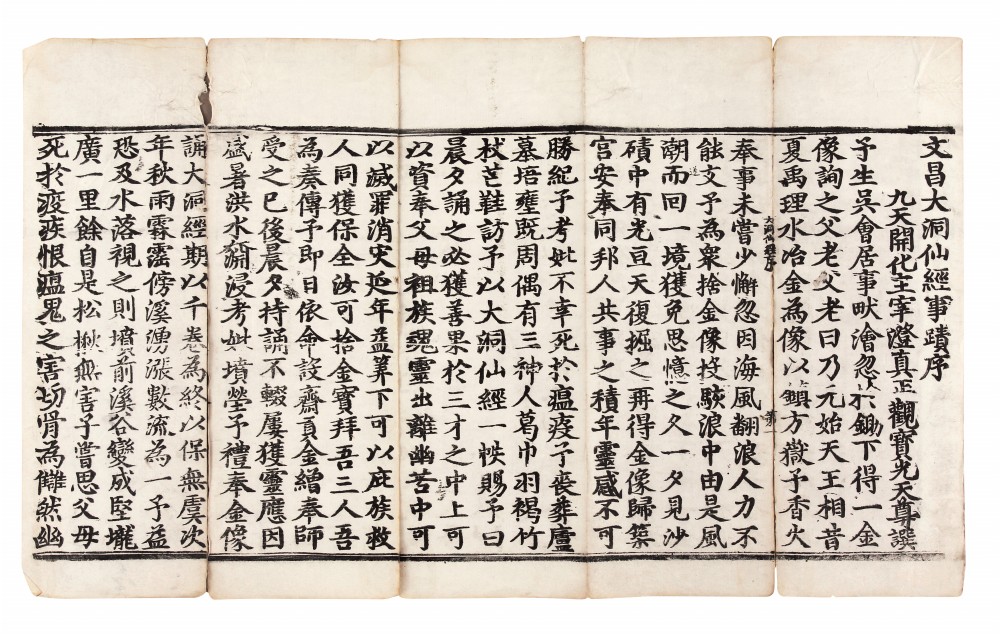 文昌大洞仙經事蹟序
九天開化主宰澄真正觀寶光天尊譔
予生吳會居事畎澮忽於鋤下得一金
像詢之父老父老曰乃元始天王相昔
夏禹理水冶金為像以鎮方嶽予香火
大洞仙經序
第一
奉事未嘗少懈忽因海風翻浪人力不
能支予為衆捨金像投駭浪中由是風
潮而回一境獲免思憶之久一夕見沙
磧中有光亘天復掘之再得金像歸築
宮安奉同邦人共事之積年靈感不可
勝紀予考妣不幸死於瘟疫予喪葬廬
墓培壅既周偶有三神人葛巾羽褐竹
杖芒鞋訪予以大洞仙經一帙賜予曰
晨夕誦之必獲善果於三才之中上可
以資奉父母祖族魂靈出離幽苦中可
以滅罪消灾延年益筭下可以庇族救
人同獲保全汝可捨金寶拜吾三人吾
為奏傳予即日依命設齋賫金繒奉師
受之已後晨夕持誦不輟屢獲靈應因
盛暑洪水瀰浸考妣墳塋予禮奉金像
誦大洞經期以千卷為終以保無虞次
年秋雨霖霪傍溪湧漲數流為一予益
恐及水落視之則墳前溪谷變成堅壠
廣一里餘自是松楸無害予嘗思父母
死於疫疾恨瘟鬼之害切骨為讎然幽